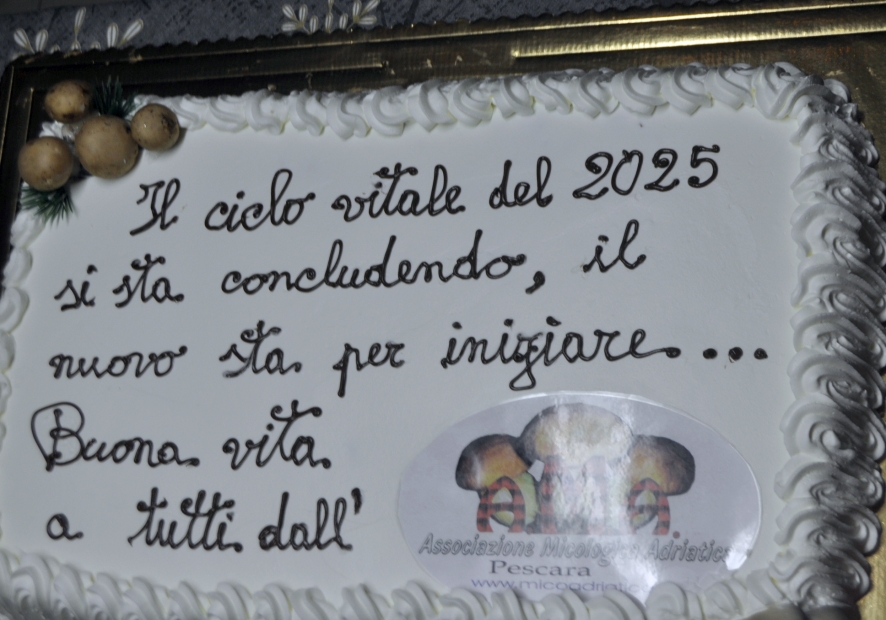 Il ciclo vitale del 2025
si sta concludendo, il
nuovo sta per iniziare...
Buona vita
a tutti dall'
AMA
Associazione Micologica Adriatica
Pescara